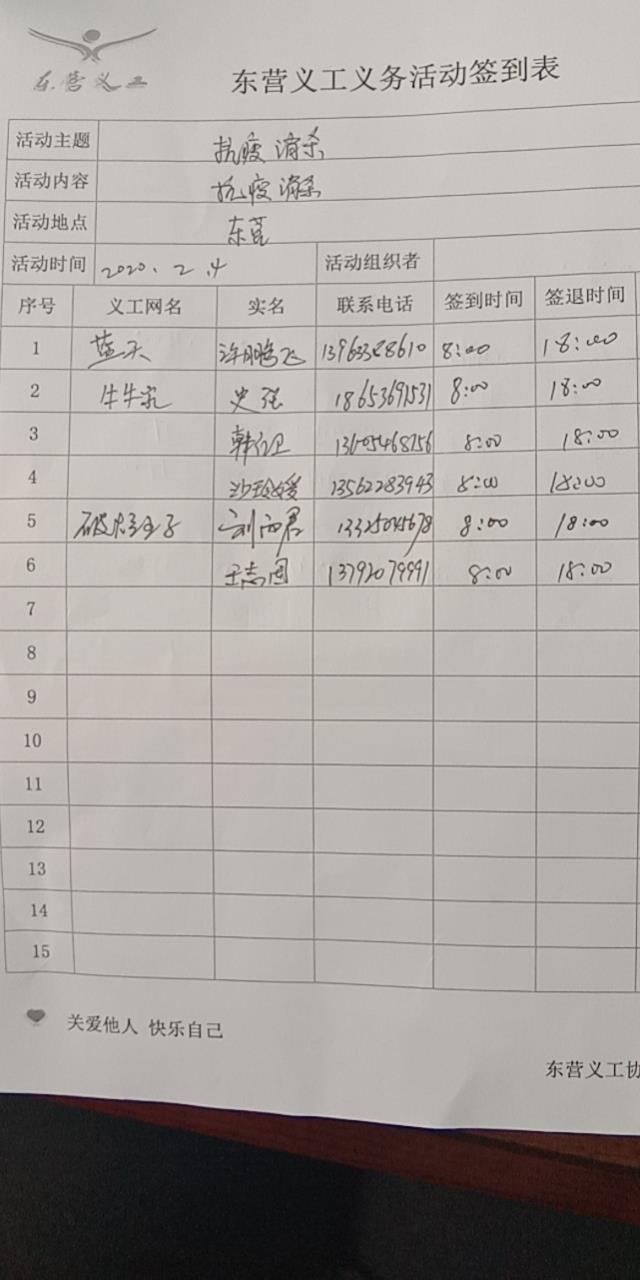 东营义工
东营义工义务活动签到表
活动主题 抗疫消杀
活动内容 抗疫消杀
活动地点 东营
活动时间 2020.2.4 活动组织者
序号 义工网名 实名 联系电话 签到时间 签退时间
1 蓝天 许鹏飞 8:00 18:00
2 牛牛 史强 18653691531 8:00 18:00
3 13605468756 8:00 18:00
4 沙玲媛 13562283943 8:00 18:00
5 13325045678 8:00 18:00
6 王志国 13792079991 8:00 18:00
7
8
9
10
11
12
13
14
15
关爱他人 快乐自己
东营义工协